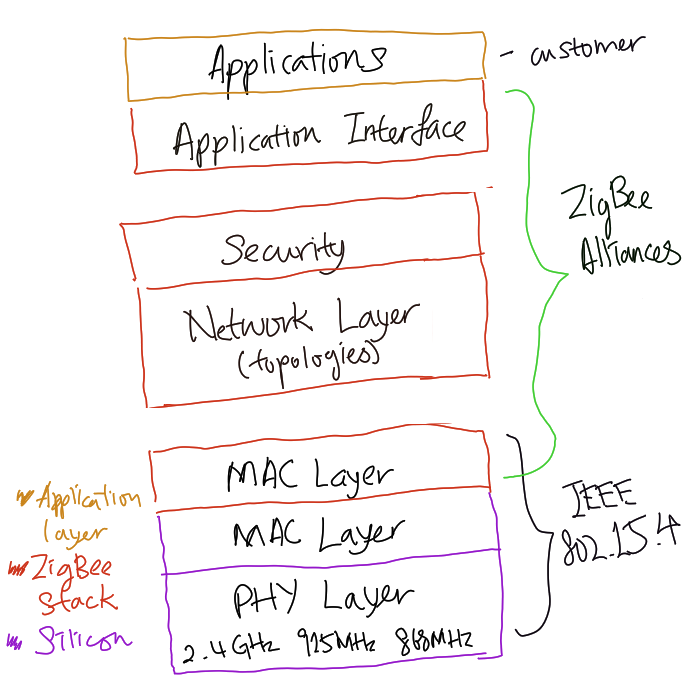 Applications
- customer
Application Interface
ZigBee
Alliances
Security
Network Layer
(topologies)
MAC Layer
MAC Layer
IEEE
802.15.4
PHY Layer
2.4GHz 915MHz 868MHz
Application
layer
ZigBee
stack
Silicon